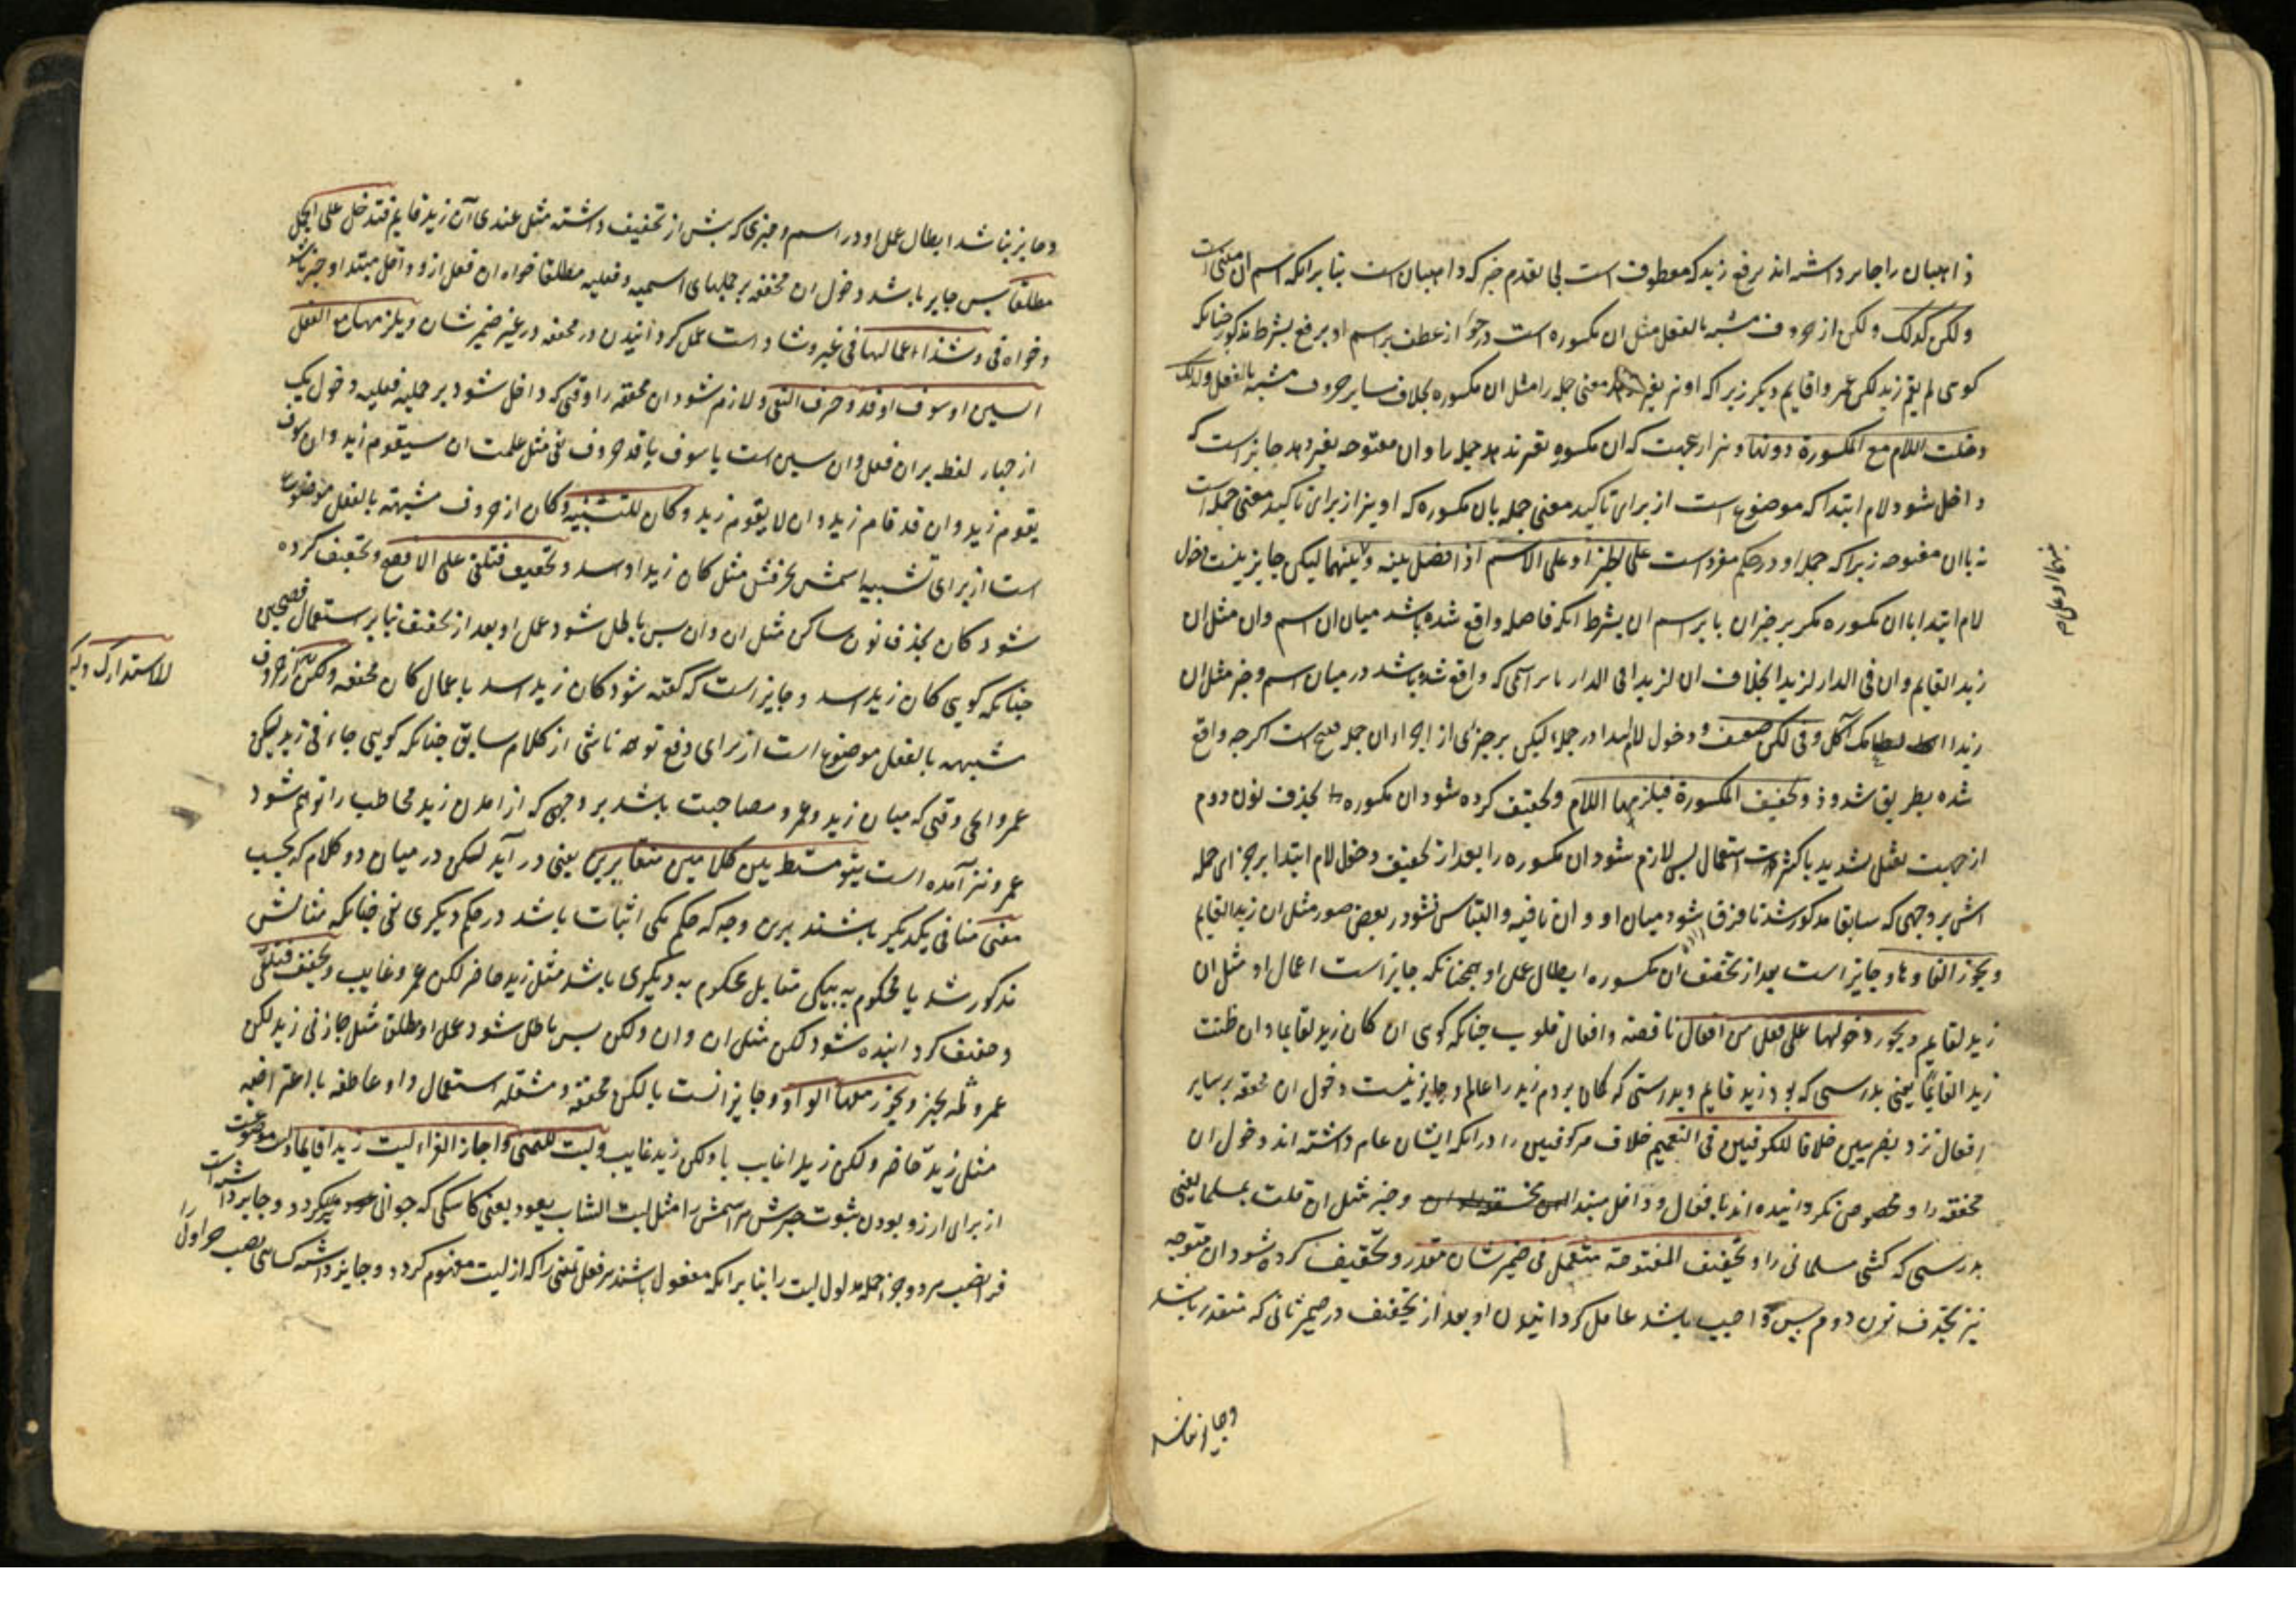 ذاهبان را جایز داشته اند برفع زید که معطوف است بی تقدم خبر که ذاهبان است بنا برانکه اسم ان مبنی است
ولکن کذلک ولکن از حروف مشبه بالفعل مثل ان مکسوره است در جواز عطف بر اسم او برفع بشرط مذکور چنانکه
کوی لم یقم زید لکن عمرا قایم و بکر زیرا که او نیز تغیر معنی جمله را مثل ان مکسوره بخلاف سایر حروف مشبه بالفعل ولذلک
دخلت اللام مع المکسورة دونها و نیز از جهت که ان مکسوره تغیر ندهد جمله را و ان مفتوحه تغیر دهد جایز است که
داخل شود لام ابتدا که موضوع است از برای تاکید معنی جمله بان مکسوره که او نیز از برای تاکید معنی جمله است
نه بان مفتوحه زیرا که جمله او در حکم مفرد است علی الخبر او علی الاسم اذا فصل بینه و بینها لیکن جایز نیست دخول
لام ابتدا با ان مکسوره مکر بر خبر ان یا بر اسم ان بشرط انکه فاصله واقع شده باشد میان ان اسم و ان مثل ان
زید القایم و ان فی الدار لزیدا بخلاف ان لزیدا فی الدار یا بر اسمی که واقع شده باشد در میان اسم و خبر مثل ان
زیدا لطعامک آکل و فی لکن ضعف و دخول لام ابتدا در جمله لیکن بر جزئی از اجزاء ان جمله ضعیف است اکرچه واقع
شده بطریق شذوذ و تخفف المکسورة فیلزمها اللام و تخفیف کرده شود ان مکسوره بحذف نون دوم
از جهت ثقل تشدید با کثرت استعمال پس لازم شود ان مکسوره را بعد از تخفیف دخول لام ابتدا بر جزای جمله
اش بر وجهی که سابقا مذکور شد تا فرق شود میان او و ان نافیه و التباس نشود در بعض صور مثل ان زید القایم
و یجوز الغاوها و جایز است بعد از تخفیف ان مکسوره ابطال عمل او همچنانکه جایز است اعمال او مثل ان
زید لقایم و یجوز دخولها علی فعل من افعال ناقصه و افعال قلوب چنانکه کوی ان کان زید لقایما و ان ظننت
زید القایما یعنی بدرستی که بود زید قایم و بدرستی که کمان بردم زید را عالم و جایز نیست دخول ان مخففه بر سایر
افعال نزد بصریین خلافا للکوفیین فی التعمیم خلاف مر کوفیین را درانکه ایشان عام داشته اند دخول ان
مخففه را و مخصوص نکردانیده اند بافعال و داخل مبتدا و خبر مثل ان قتلت لمسلما یعنی
بدرستی که کشتی مسلمانی را و تخفف المفتوحة فتعمل فی ضمیر شان مقدر و تخفیف کرده شود ان مفتوحه
نیز بحذف نون دوم پس واجب باشد عامل کردانیدن او بعد از تخفیف در ضمیر شانی که مقدر باشد
وجایز نباشد
وجایز نباشد ابطال عمل او در اسم و خبری که پیش از تخفیف داشته مثل عندی ان زید قایم فتدخل علی الجمل
مطلقا پس جایز باشد دخول ان مخففه بر جملهای اسمیه و فعلیه مطلقا خواه ان فعل از دواخل مبتدا و خبر باشد
و خواه نی و شذ اعمالها فی غیره و شاذ است عمل کردانیدن در مخففه در غیر ضمیر شان و یلزمها مع الفعل
السین او سوف او قد او حرف النفی و لازم شود ان مخففه را وقتی که داخل شود بر جملیه فعلیه دخول یک
از چهار لفظ بر ان فعل و ان سین است یا سوف یا قد حروف نفی مثل علمت ان سیقوم زید و ان سوف
یقوم زید و ان قد قام زید و ان لا یقوم زید و کان للتشبیه و کان از حروف مشبهه بالفعل موضوع
است از برای تشبیه اسمش بخبرش مثل کان زیدا اسد و تخفف فتلغی علی الافصح و تخفیف کرده
شود کان بحذف نون ساکن مثل ان و ان پس باطل شود عمل او بعد از تخفیف بنا بر استعمال فصیحین
چنانکه کویی کان زید اسد و جایز است که گفته شود کان زیدا اسد باعمال کان مخففه ولکن از حروف
للاستدراک ولکن
شبیهه بالفعل موضوع است از برای دفع توهم ناشی از کلام سابق چنانکه کویی جاءنی زید لکن
عمروا لم وقتی که میان زید و عمرو مصاحبت باشد بر وجهی که از امدن زید مخاطب را توهم شود
عمرو نیز آمده است یتوسط بین کلامین متغایرین یعنی در آید لکن در میان دو کلام که بحسب
معنی منافی یکدیگر باشند برین وجه که حکم یکی اثبات باشد در حکم دیگری نفی چنانکه مثالش
مذکور شد یا محکوم به بیکی مقابل محکوم به دیگری باشد مثل زید حاضر لکن عمرو غایب و تخفف فتلغی
و خفیف کردانیده شود لکن مثل ان و ان و لکن پس باطل شود عمل او مطلق مثل جاءنی زید لکن
عمرو لم یجئ و یجوز معها الواو و جایز است با لکن مخففه و مثقله استعمال واو عاطفه یا اعتراضیه
مثل زید حاضر ولکن زیدا غایب یا ولکن زید غایب و لیت للتمنی و اجاز الفراء لیت زیدا قایما و لیت موضوعست
از برای ارزو بودن ثبوت خبرش مر اسمش را مثل لیت الشاب یعود یعنی کاشکی که جوانی عود میکردد و جایز داشته است
فرا نصب هر دو جزء جمله مدلول لیت را بنا برانکه مفعول باشند مر فعل تمنی را که از لیت مفهوم کردد و جایز داشته کسائی نصب جزء اول